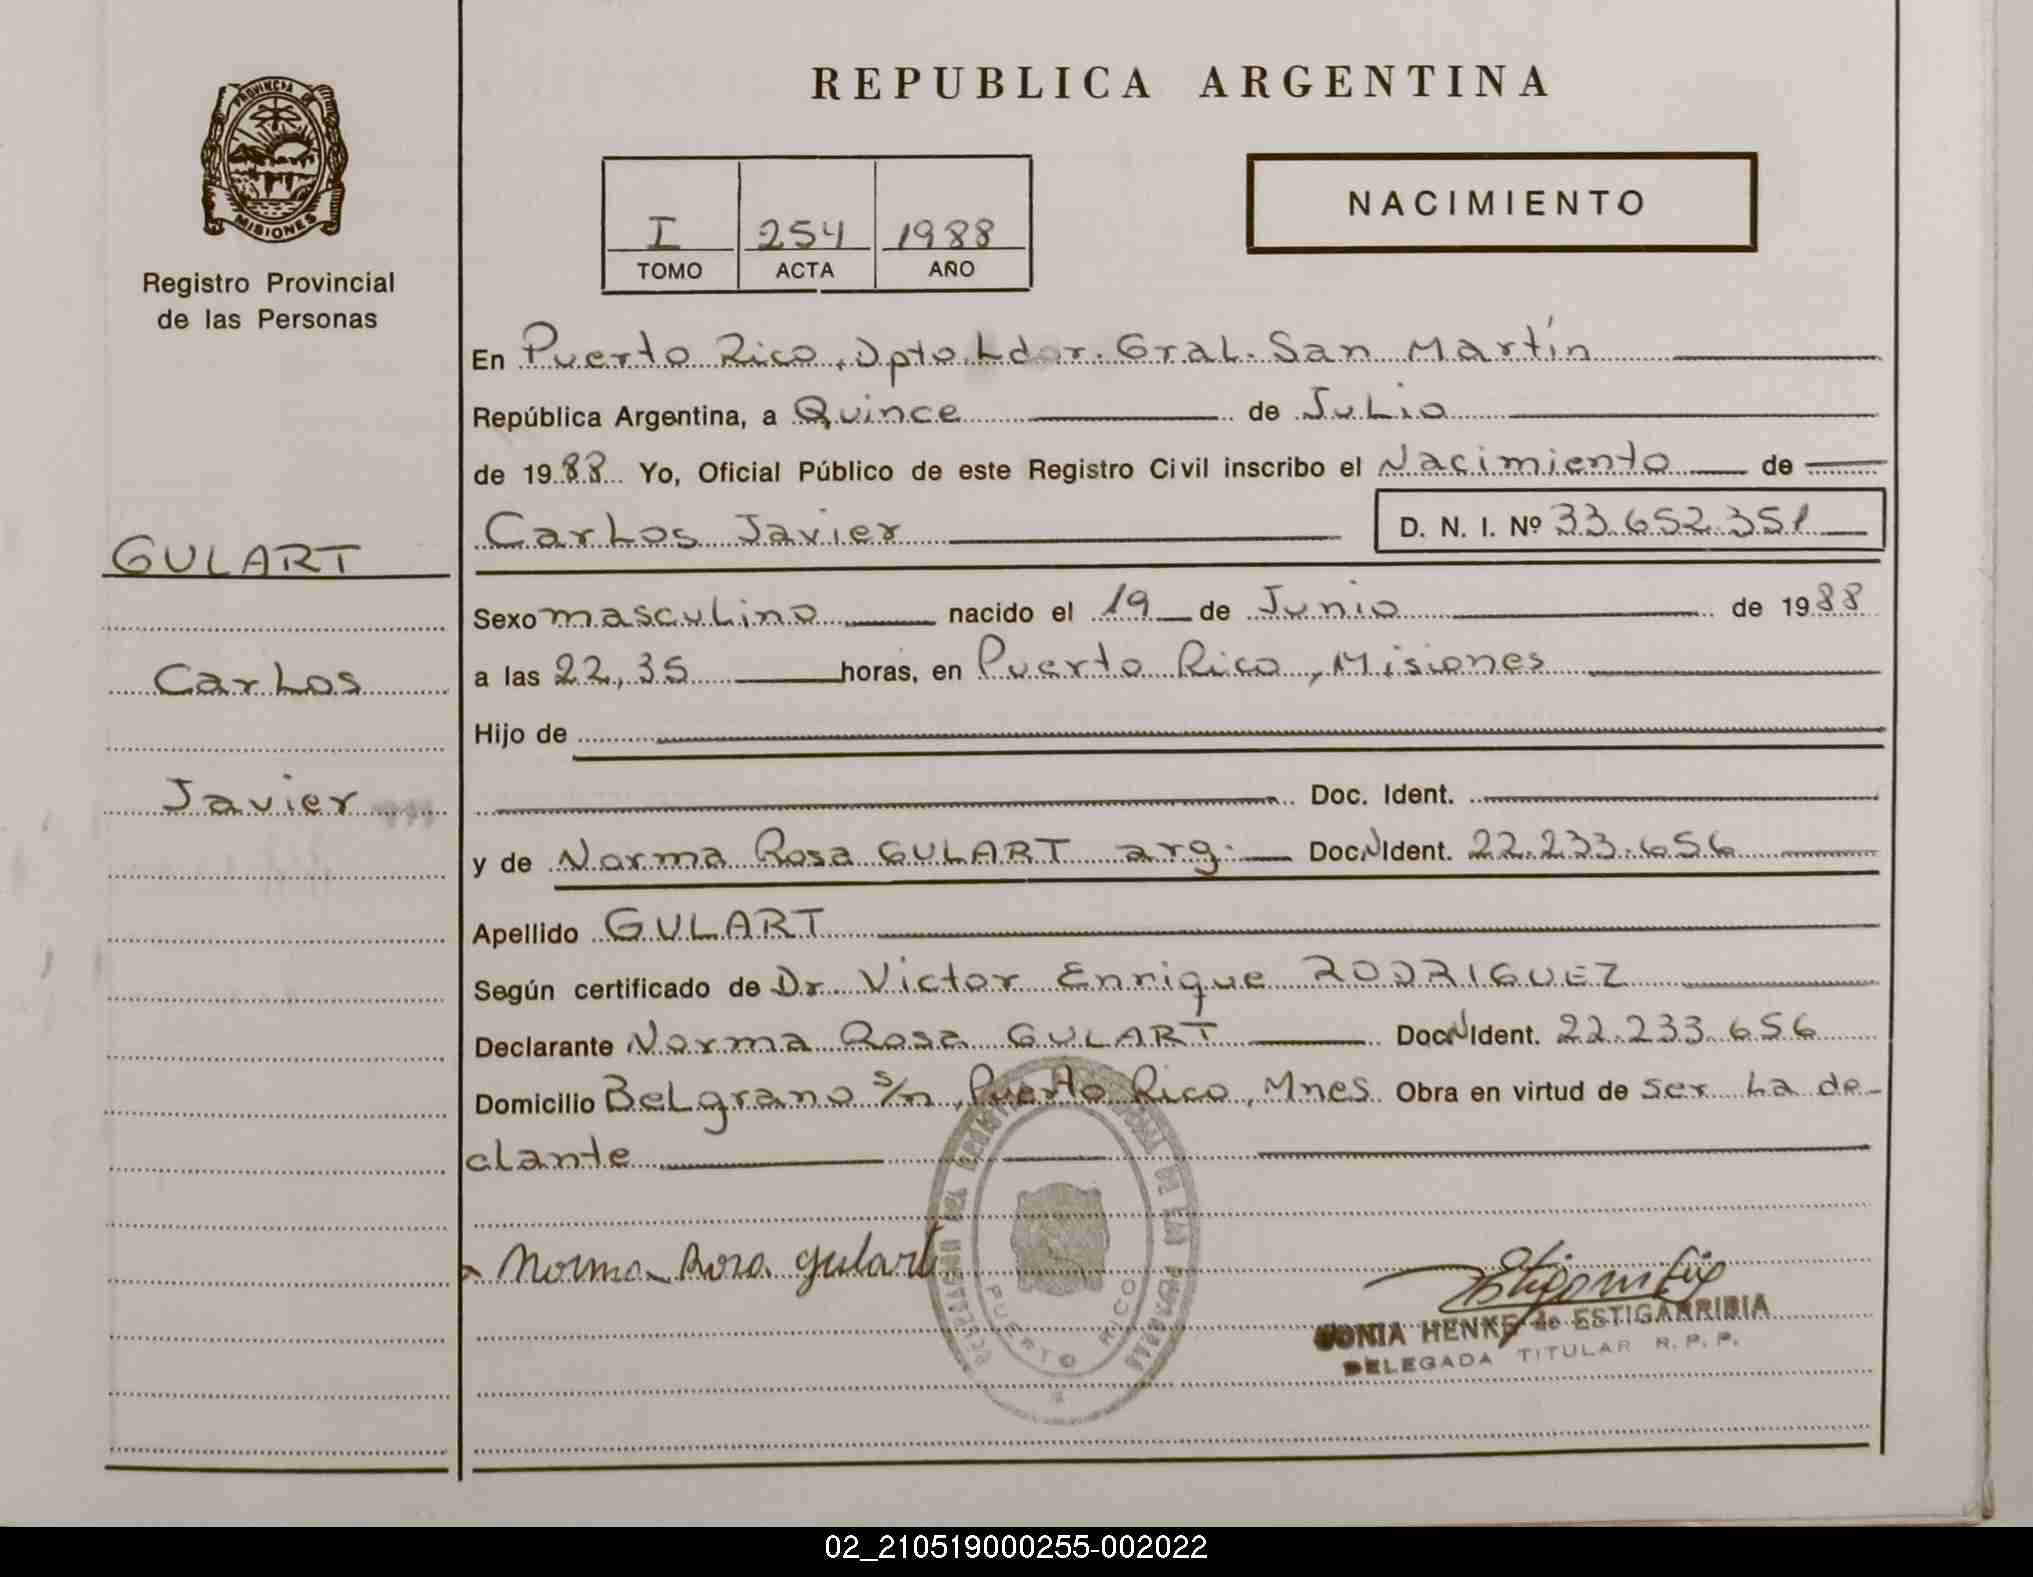 PROVINCIA DE
MISIONES
Registro Provincial
de las Personas
GULART
Carlos
Javier
REPUBLICA ARGENTINA
I 254 1988
TOMO ACTA AÑO
NACIMIENTO
En Puerto Rico, Dpto. Ldor. Gral. San Martín
República Argentina, a Quince de Julio
de 1988 Yo, Oficial Público de este Registro Civil inscribo el Nacimiento de
Carlos Javier D. N. I. Nº 33.652.351
Sexo masculino nacido el 19 de Junio de 1988
a las 22,35 horas, en Puerto Rico, Misiones
Hijo de
Doc. Ident.
y de Norma Rosa GULART arg. Doc.N Ident. 22.233.656
Apellido GULART
Según certificado de Dr. Victor Enrique RODRIGUEZ
Declarante Norma Rosa GULART Doc.N Ident. 22.233.656
Domicilio Belgrano s/n, Puerto Rico, Mnes. Obra en virtud de ser la de-
clante
Norma Rosa Gulart
PUERTO RICO
SONIA HENKE de ESTIGARRIBIA
DELEGADA TITULAR R. P. P.
02_210519000255-002022